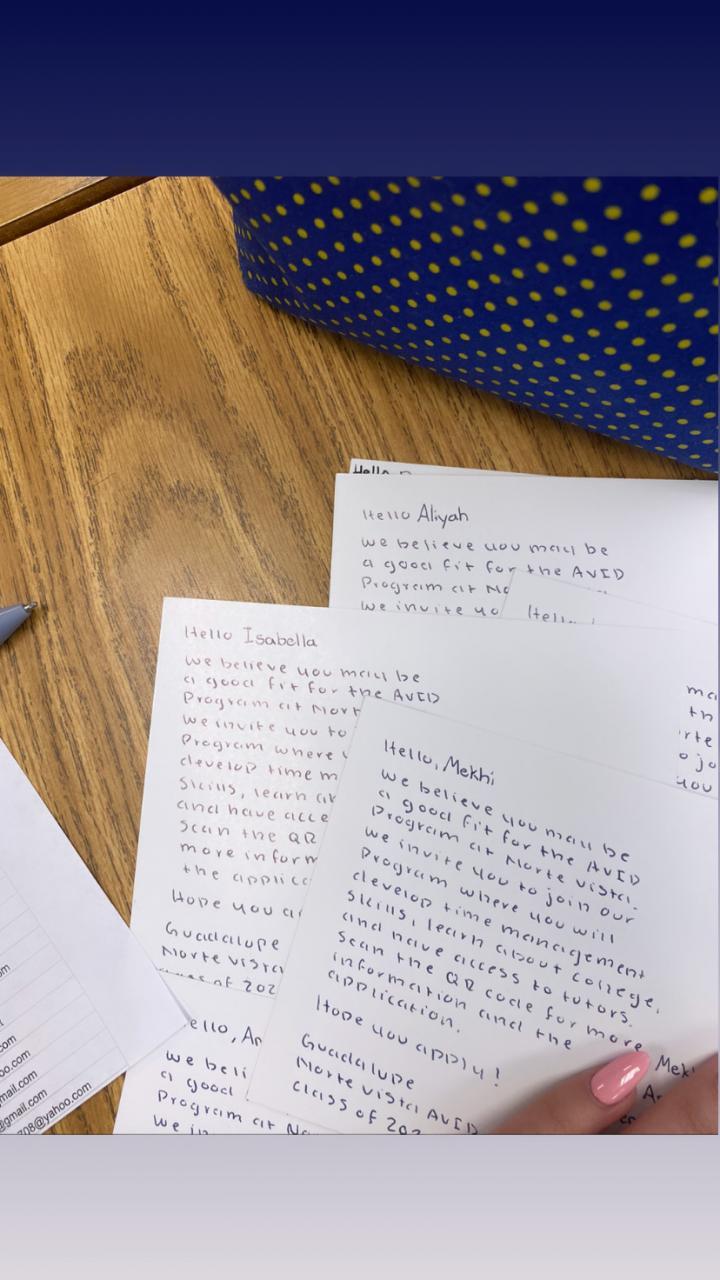 Hello
Hello Aliyah
we believe you may be
a good fit for the AVID
Program at No
we invite yo
Hello Isabella
we believe you may be
a good fit for the AVID
Program at Nort
we invite you to
Program where
develop time m
skills, learn
and have acce
scan the QR
more inform
the applic
Hope you a
Guadalupe
Norte vista
Hello, Mekhi
we believe you may be
a good fit for the AVID
Program at Norte vista.
we invite you to join our
Program where you will
develop time management
skills, learn about college,
and have access to tutors.
scan the QR code for more
information and the
application.
Hope you apply!
Guadalupe
Norte vista AVID
class of 202
ello, Ar
we beli
a good
Program at No
we in
Mek
ma
th
rte
o jo
you
om
.com
oo.com
mail.com
@gmail.com
708@yahoo.com